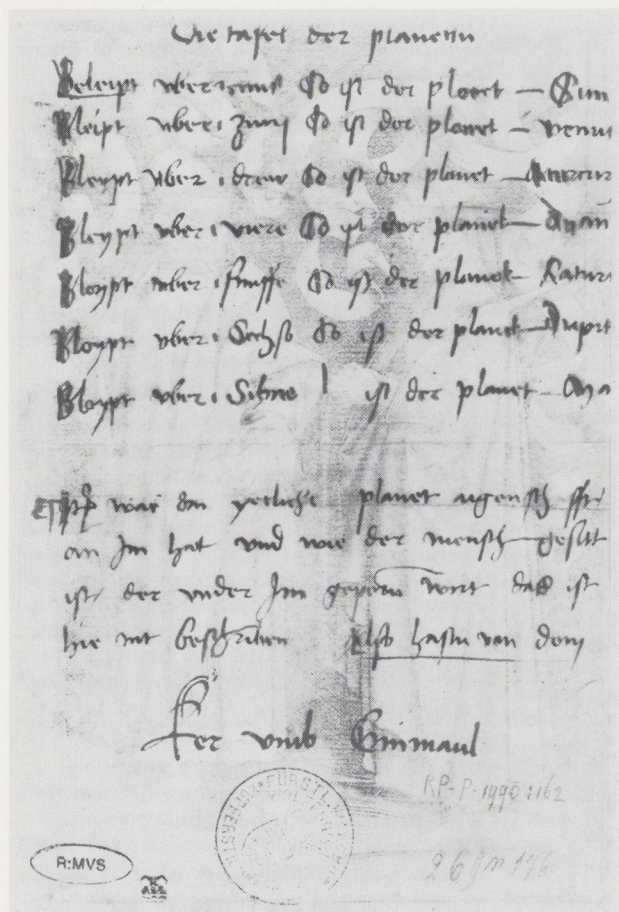 Die tafel der planetenn
Beleipt vber · eins So ist der planet – Sun
Bleipt vber · zwei So ist der planet – venus
Bleypt vber · drew So ist der planet – Mercur
Bleypt vber · viere So ist der planet –
Bleypt vber · funffe So ist der planet Satur
Bleypt vber · Sechse So ist der planet – Jupit
Bleypt vber · Sibene ist der planet – Ma
was ein yetlicher planet aigenschafft
an Im hat vnd wie der mensch gesitt
ist der vnder Im geporn wirt das ist
hie nit beschriben Also hastu von dem
Ker vmb Einmaul
RP-P-1990:162
FÜRSTL.
R:MVS